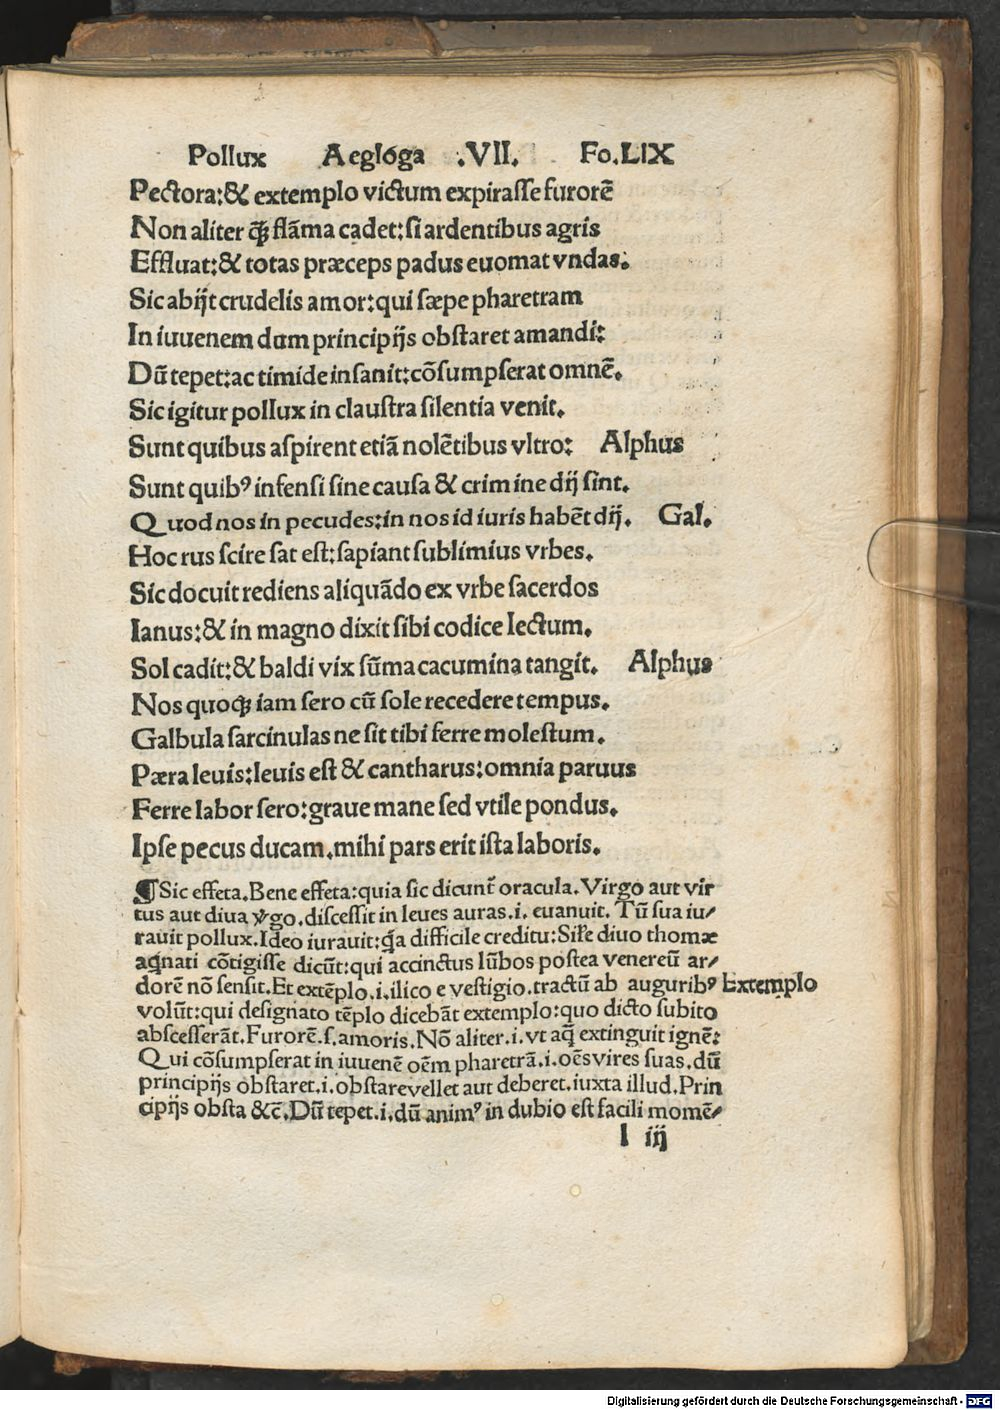 Pollux Aegloga .VII. Fo.LIX
Pectora:& extemplo victum expirasse furorē
Non aliter ꝙ̃ flāma cadet:si ardentibus agris
Effluat:& totas præceps padus euomat vndas.
Sic abijt crudelis amor:qui sæpe pharetram
In iuuenem dum principijs obstaret amandi:
Dū tepet:ac timide insanit:cōsumpserat omnē.
Sic igitur pollux in claustra silentia venit.
Sunt quibus aspirent etiā nolētibus vltro: Alphus
Sunt quibꝰ infensi sine causa & crimine dij sint.
Quod nos in pecudes:in nos id iuris habēt dij. Gal.
Hoc rus scire sat est:sapiant sublimius vrbes.
Sic docuit rediens aliquādo ex vrbe sacerdos
Ianus:& in magno dixit sibi codice lectum.
Sol cadit:& baldi vix sūma cacumina tangit. Alphus
Nos quoqꝫ iam sero cū sole recedere tempus.
Galbula sarcinulas ne sit tibi ferre molestum.
Pæra leuis:leuis est & cantharus:omnia paruus
Ferre labor sero:graue mane sed vtile pondus.
Ipse pecus ducam.mihi pars erit ista laboris.
¶Sic effeta.Bene effeta:quia sic dicunt̃ oracula.Virgo aut vir
tus aut diua v̛go.discessit in leues auras.i.euanuit. Tū sua iu/
rauit pollux.Ideo iurauit:q̃a difficile creditu:Sil̃e diuo thomæ
aq̃nati cōtigisse dicūt:qui accinctus lūbos postea venereū ar/
dorē nō sensit.Et extēplo.i.ilico e vestigio.tractū ab auguribꝰ Extemplo
volūt:qui designato tēplo dicebāt extemplo:quo dicto subito
abscesserāt.Furorē.s.amoris.Nō aliter.i.vt aq̃ extinguit ignē:
Qui cōsumpserat in iuuenē oēm pharetrā.i.oēs vires suas.dū
principijs obstaret.i.obstare vellet aut deberet.iuxta illud.Prin
cipijs obsta &c̄.Dū tepet.i.dū animꝰ in dubio est facili momē/
I iij
Digitalisierung gefördert durch die Deutsche Forschungsgemeinschaft - DFG